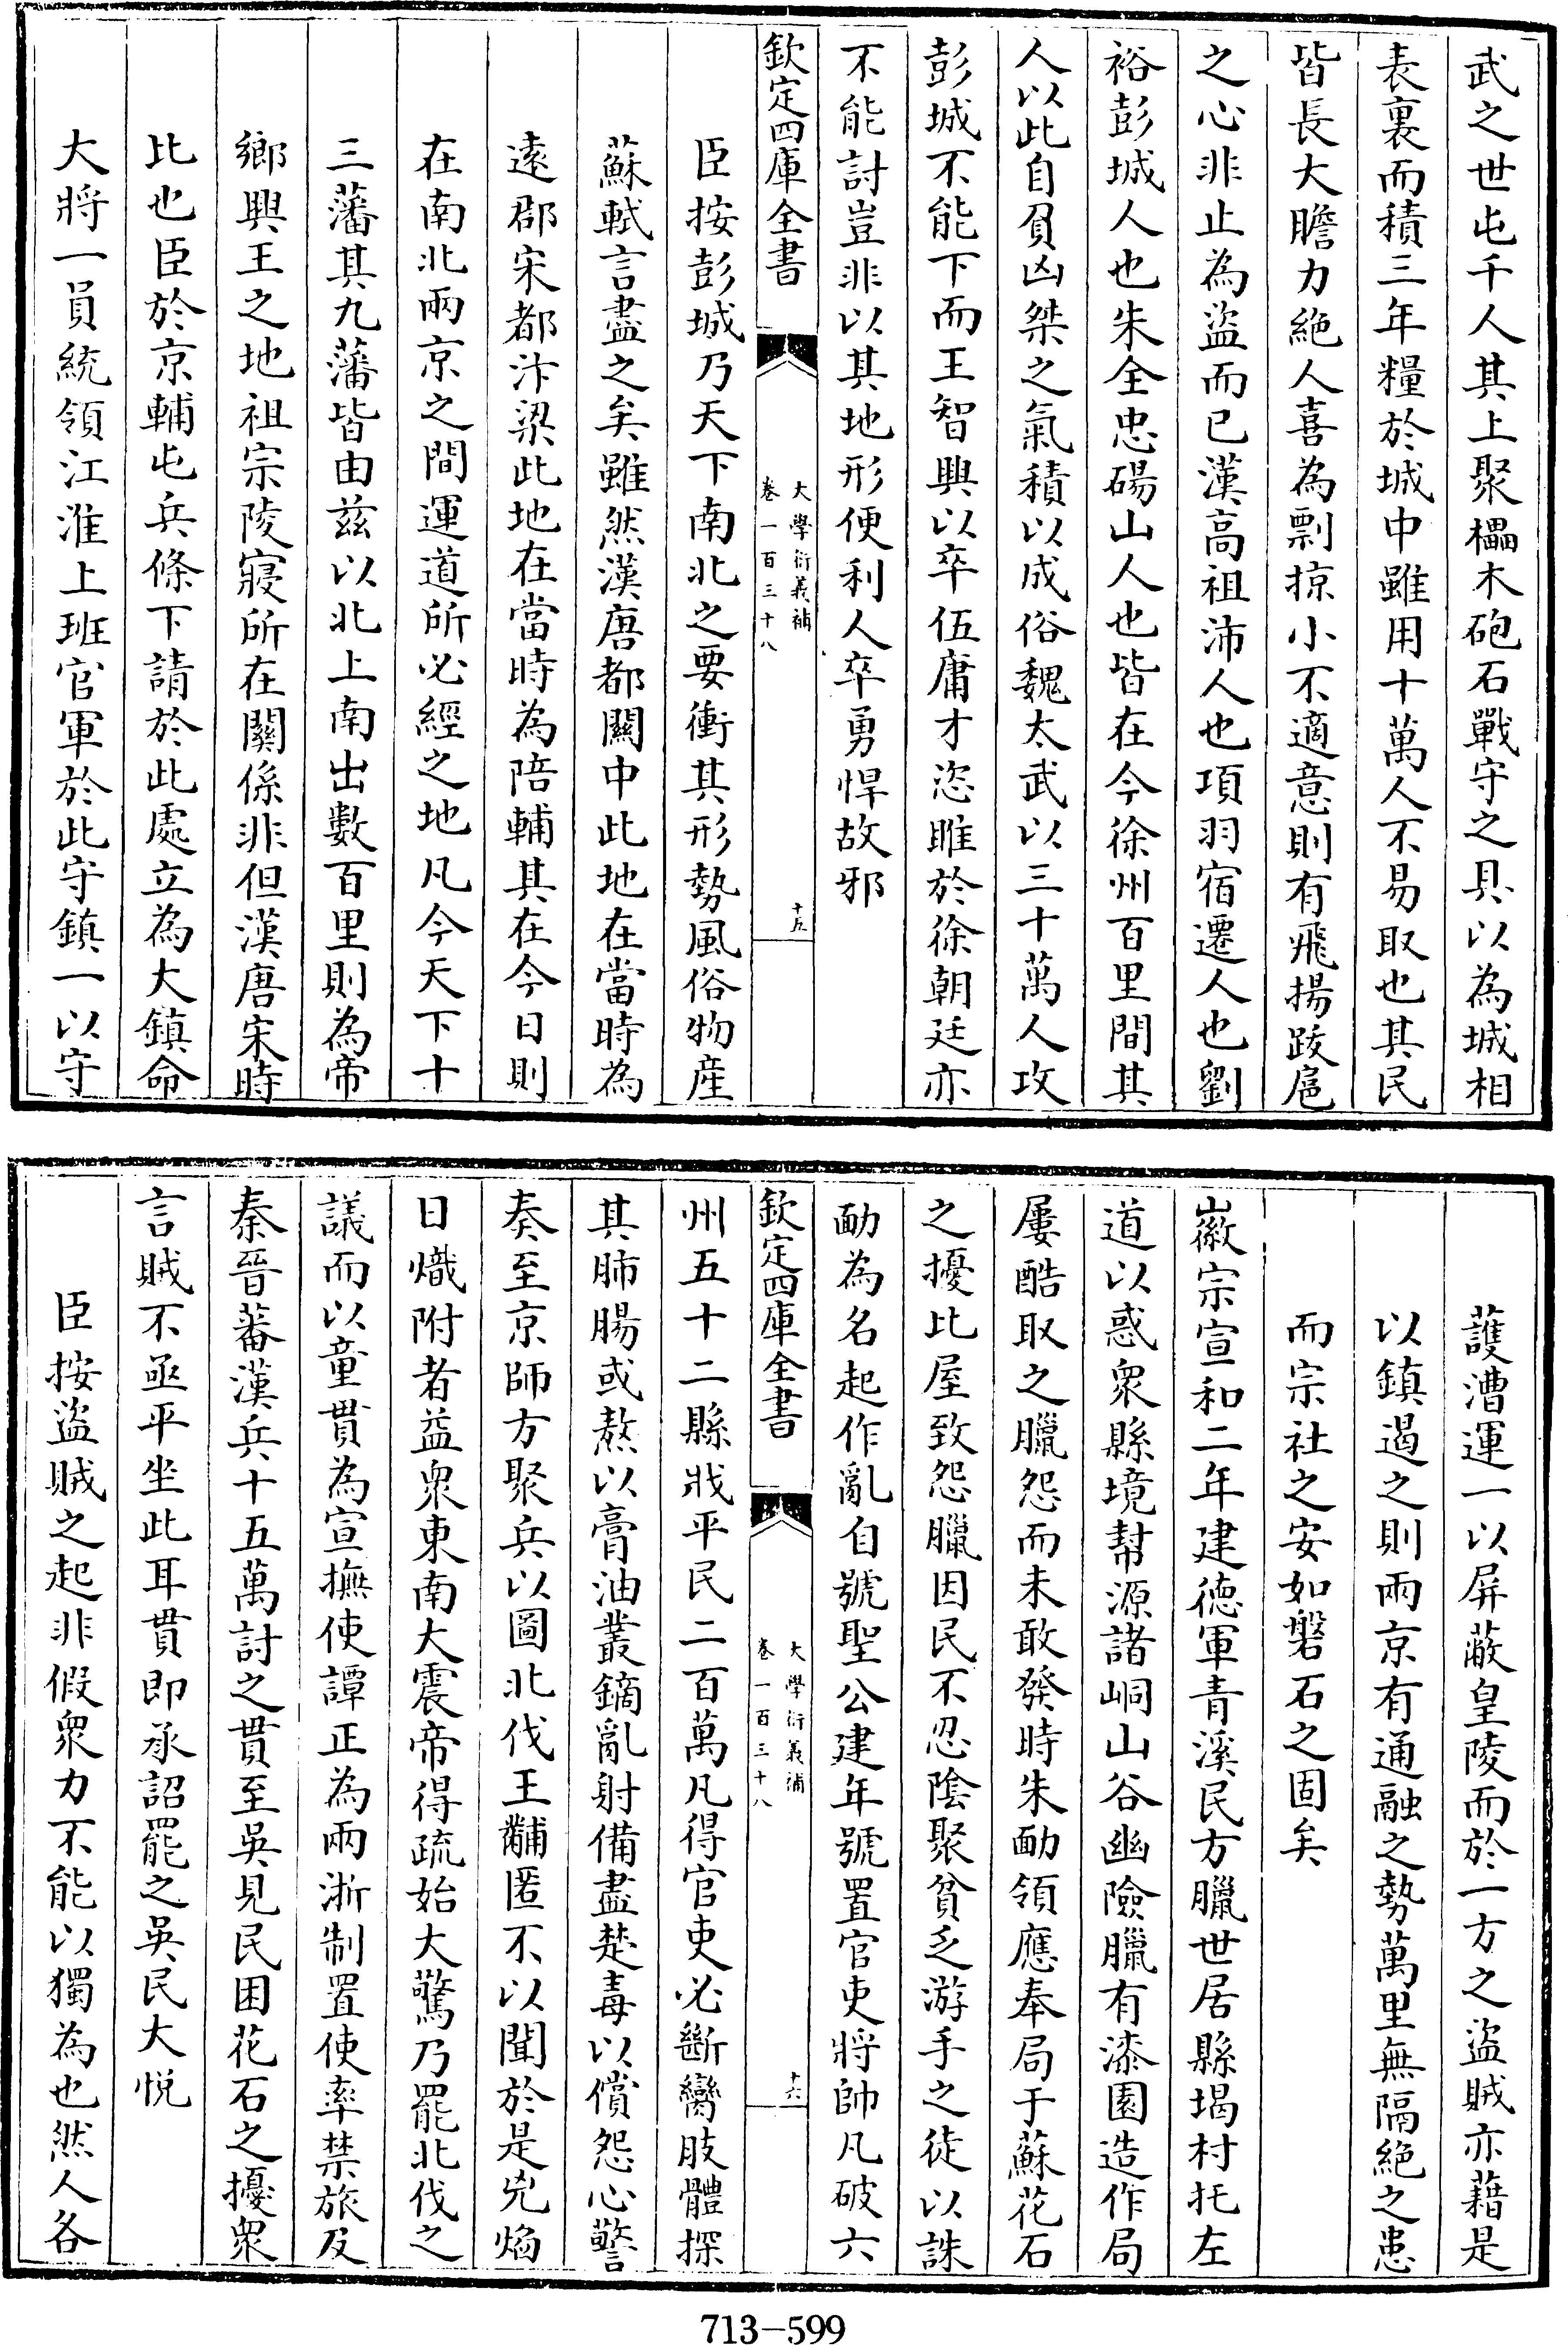 武之世屯千人其上聚櫑木砲石戰守之具以為城相
表裏而積三年糧於城中雖用十萬人不易取也其民
皆長大膽力絶人喜為剽掠小不適意則有飛揚跋扈
之心非止為盜而已漢髙祖沛人也項羽宿遷人也劉
裕彭城人也朱全忠碭山人也皆在今徐州百里間其
人以此自負凶桀之氣積以成俗魏太武以三十萬人攻
彭城不能下而王智興以卒伍庸才恣雎於徐朝廷亦
不能討豈非以其地形便利人卒勇悍故邪
欽定四庫全書
大學衍義補
卷一百三十八
十五
臣按彭城乃天下南北之要衝其形勢風俗物産
蘇軾言盡之矣雖然漢唐都關中此地在當時為
逺郡宋都汴梁此地在當時為陪輔其在今日則
在南北兩京之間運道所必經之地凡今天下十
三藩其九藩皆由兹以北上南出數百里則為帝
鄉興王之地祖宗陵寢所在關係非但漢唐宋時
比也臣於京輔屯兵條下請於此處立為大鎮命
大將一員統領江淮上班官軍於此守鎮一以守
護漕運一以屏蔽皇陵而於一方之盜賊亦藉是
以鎮遏之則兩京有通融之勢萬里無隔絶之患
而宗社之安如磐石之固矣
徽宗宣和二年建徳軍青溪民方臘世居縣堨村托左
道以惑衆縣境幇源諸峒山谷幽險臘有漆園造作局
屢酷取之臘怨而未敢發時朱勔領應奉局于蘇花石
之擾比屋致怨臘因民不忍隂聚貧乏游手之徒以誅
勔為名起作亂自號聖公建年號置官吏將帥凡破六
欽定四庫全書
大學衍義補
卷一百三十八
十六
州五十二縣戕平民二百萬凡得官吏必斷臠肢體探
其肺腸或熬以膏油叢鏑亂射備盡楚毒以償怨心警
奏至京師方聚兵以圖北伐王黼匿不以聞於是兇焰
日熾附者益衆東南大震帝得疏始大驚乃罷北伐之
議而以童貫為宣撫使譚正為兩浙制置使率禁旅及
秦晉蕃漢兵十五萬討之貫至吳見民困花石之擾衆
言賊不亟平坐此耳貫即承詔罷之吳民大悦
臣按盜賊之起非假衆力不能以獨為也然人各
713-599